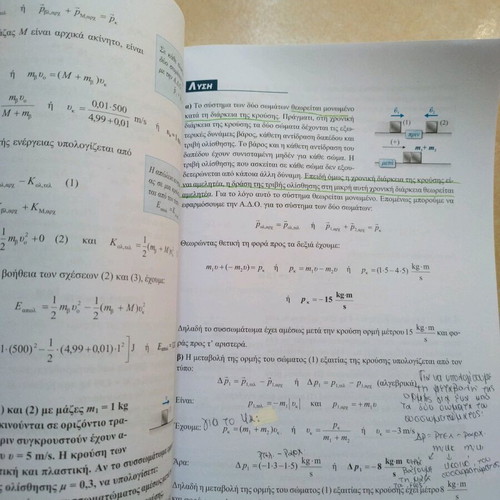 ή p̄βλ,αρχ + p̄Μ,αρχ = p̄κ
άζας M είναι αρχικά ακίνητο, είναι
ή mβυο = (M + mβ)υκ
mβυο / M + mβ ή υκ = 0,01·500 / 4,99 + 0,01 m/s ή
ής ενέργειας υπολογίζεται από
− Kολ,τελ (1)
+ KΜ,αρχ
1/2 mβυο² + 0 (2) και Kολ,τελ = 1/2 (mβ + M)υκ²
βοήθεια των σχέσεων (2) και (3), έχουμε:
Eαπωλ = 1/2 mβυο² − 1/2 (mβ + M)υκ²
1·(500)² − 1/2 ·(4,99 + 0,01)·1² ] J ή
) και (2) με μάζες m₁ = 1 kg
κινούνται σε οριζόντιο τρα-
πριν συγκρουστούν έχουν α-
υ = 5 m/s. Η κρούση των
τική και πλαστική. Αν το συσσωμάτωμα
ς ολίσθησης μ = 0,3, να υπολογίσετε:
ΛΥΣΗ
α) Το σύστημα των δύο σωμάτων θεωρείται μονωμένο
κατά τη διάρκεια της κρούσης. Πράγματι, στη χρονική
διάρκεια της κρούσης τα δύο σώματα δέχονται τις εξω-
τερικές δυνάμεις βάρος, κάθετη αντίδραση δαπέδου και
τριβή ολίσθησης. Το βάρος και η κάθετη αντίδραση του
δαπέδου έχουν συνισταμένη μηδέν για κάθε σώμα. Η
τριβή ολίσθησης που ασκείται σε κάθε σώμα δεν εξου-
δετερώνεται από κάποια άλλη δύναμη. Επειδή όμως η χρονική διάρκεια της κρούσης εί-
ναι αμελητέα, η δράση της τριβής ολίσθησης στη μικρή αυτή χρονική διάρκεια θεωρείται
αμελητέα. Για το λόγο αυτό το σύστημα θεωρείται μονωμένο. Επομένως μπορούμε να
εφαρμόσουμε την Α.Δ.Ο. για το σύστημα των δύο σωμάτων:
(1) (2)
πριν
(+) m₁ + m₂
μετά
p̄ολ,αρχ = p̄ολ,τελ ή p̄1,αρχ + p̄2,αρχ = p̄κ
Θεωρώντας θετική τη φορά προς τα δεξιά έχουμε:
m₁υ + (−m₂υ) = pκ ή pκ = m₁υ − m₂υ ή pκ = (1·5 − 4·5) kg·m/s
ή pκ = −15 kg·m/s
Δηλαδή το συσσωμάτωμα έχει αμέσως μετά την κρούση ορμή μέτρου 15 kg·m/s και φο-
ράς προς τ' αριστερά.
β) Η μεταβολή της ορμής του σώματος (1) εξαιτίας της κρούσης υπολογίζεται από τον
τύπο:
Δp̄₁ = p̄1,τελ − p̄1,αρχ ή Δp₁ = p1,τελ − p1,αρχ (αλγεβρικά)
Είναι: p1,τελ = −m₁|υκ| και p1,αρχ = +m₁υ
για το
Έχουμε: pκ = (m₁ + m₂)υκ ή υκ = pκ / m₁ + m₂ ή υκ = −3 m/s
Άρα: Δp₁ = (−1·3 − 1·5) kg·m/s ή Δp₁ = −8 kg·m/s
Δηλαδή η μεταβολή της ορμής του σώματος (1) εξαιτίας της κρούσης έχει
Για να υπολογίσουμε
τα δύο σώματα